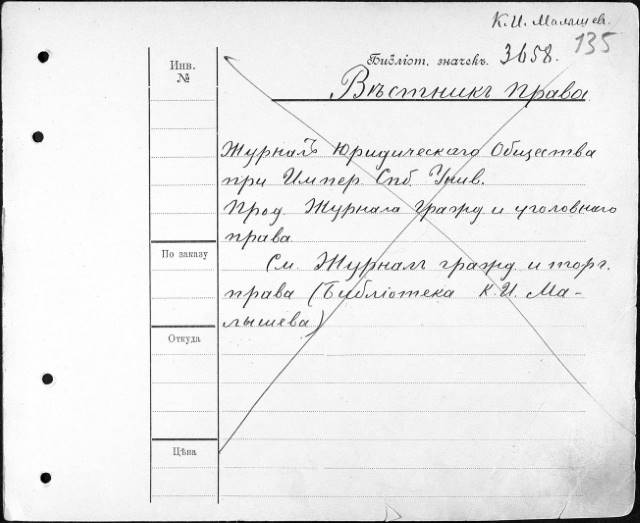 К. И. Малышев.
135
Инв.
№
Библіот. значекъ. 3658.
Вѣстникъ Права.
Журналъ Юридическаго Общества
при Импер. Спб. Унив.
Прод. Журнала Гражд и уголовнаго
права
По заказу
См. Журналъ гражд. и торг.
права (Библіотека К. И. Ма-
лышева)
Откуда
Цѣна